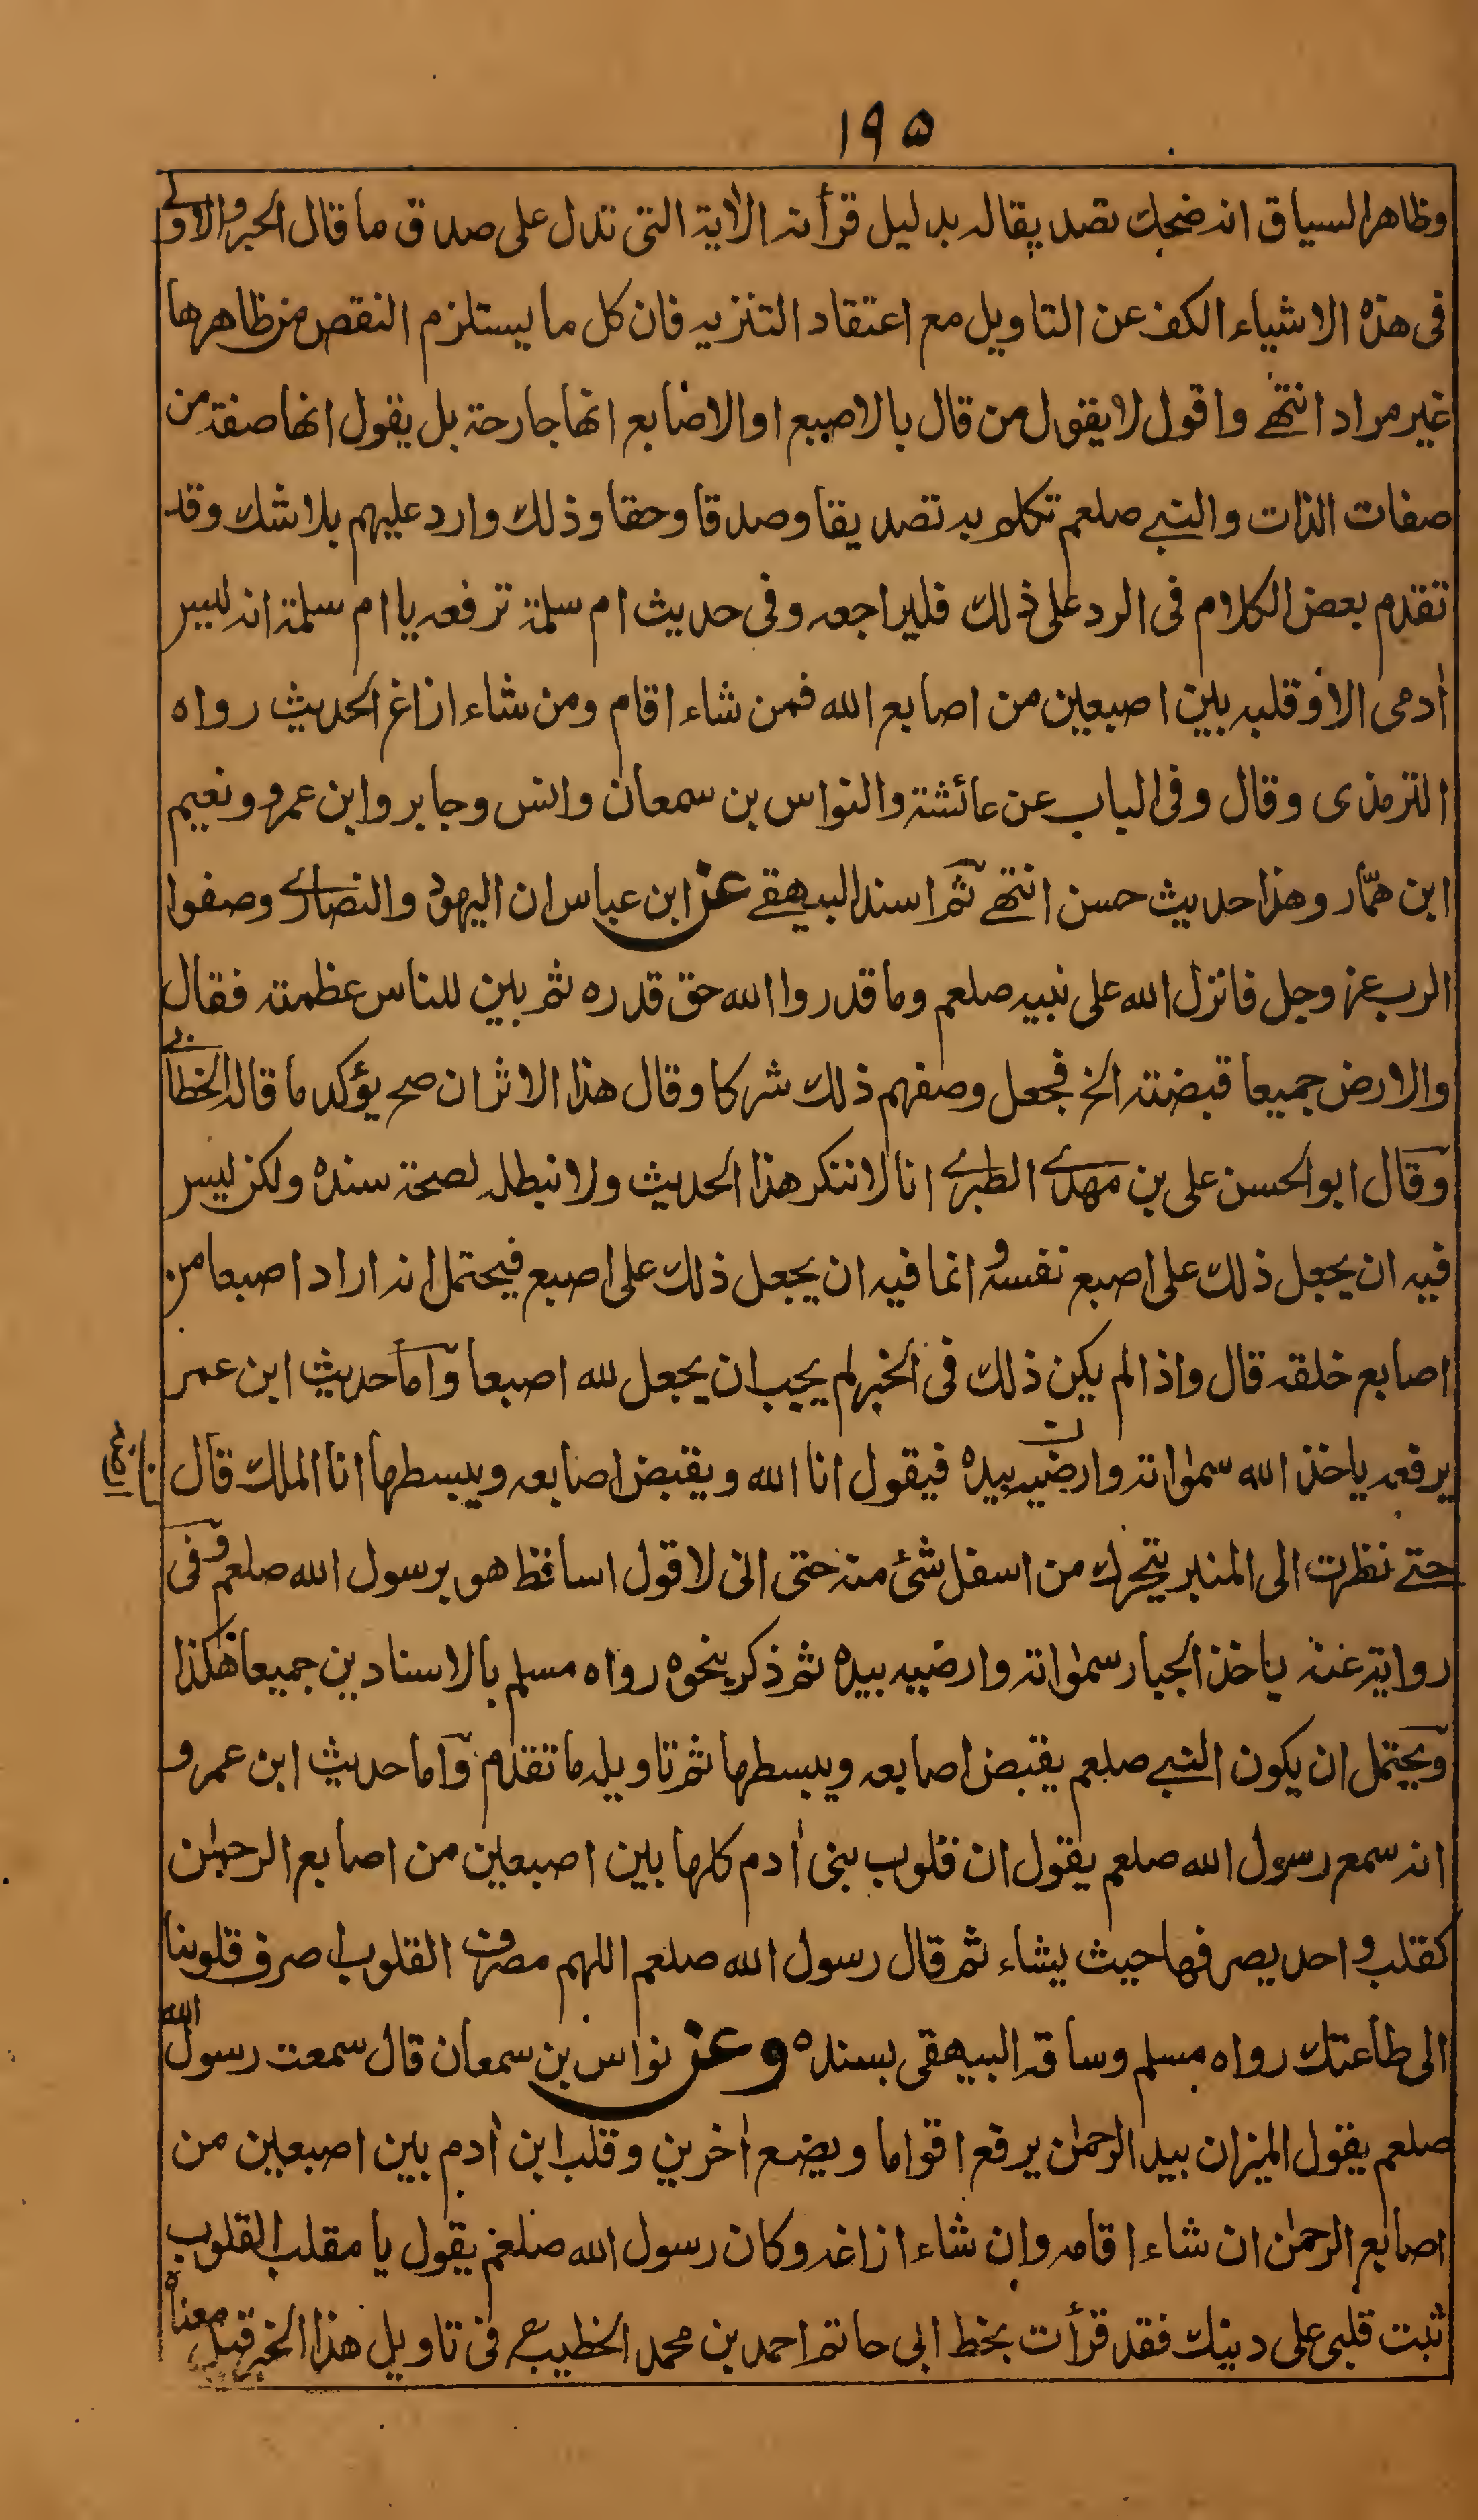 ١٩٥
وظاهر السياق انه ضحك تصديقا له بدليل قرأته الاٰية التى تدل على صدق ما قال الحبر والاولے
فى هذه الاشياء الكف عن التاويل مع اعتقاد التنزيه فان كل ما يستلزم النقص من ظاهرها
غير مراد انتهے واقول لا يقول من قال بالاصبع اوالاصابع انها جارحة بل يقول انها صفة من
صفات الذات والنبے صلعم تكلم به تصديقا وصدقا وحقا وذلك وارد عليهم بلا شك وقد
تقدم بعض الكلام فى الرد على ذلك فليراجعه وفى حديث ام سلمة ترفعه يا ام سلمة انه ليس
اٰدمى الا وقلبه بين اصبعين من اصابع الله فمن شاء اقام ومن شاء ازاغ الحديث رواه
الترمذى وقال وفى الباب عن عائشة والنواس بن سمعان وانس وجابر وابن عمرو ونعيم
ابن همّار وهذا حديث حسن انتهے ثم اسند البيهقے عن ابن عباس ان اليهود والنصارے وصفوا
الرب عز وجل فانزل الله على نبيه صلعم وما قدروا الله حق قدره ثم بين للناس عظمته فقال
والارض جميعا قبضته الخ فجعل وصفهم ذلك شركا وقال هذا الاثر ان صح يؤكد ما قاله الخطابے
وقال ابو الحسن على بن مهدے الطبرے انا لا ننكر هذا الحديث ولا نبطله لصحة سنده ولكن ليس
فيه ان يجعل ذلك على اصبع نفسه وانما فيه ان يجعل ذلك على اصبع فيحتمل انه اراد اصبعا من
اصابع خلقه قال واذا لم يكن ذلك فى الخبر لم يجب ان يجعل لله اصبعا واما حديث ابن عمر
يرفعه ياخذ الله سمٰواته وارضيه بيده فيقول انا الله ويقبض اصابعه ويبسطها انا الملك قال
حتے نظرت الى المنبر يتحرك من اسفل شئ منه حتى انى لاقول اساقط هو برسول الله صلعم وفى
رواية عنه ياخذ الجبار سمٰواته وارضيه بيده ثم ذكر نحوه رواه مسلم بالاسنادين جميعا هٰكذا
ويحتمل ان يكون النبے صلعم يقبض اصابعه ويبسطها ثم تاويله ما تقدم واما حديث ابن عمرو
انه سمع رسول الله صلعم يقول ان قلوب بنى اٰدم كلها بين اصبعين من اصابع الرحمٰن
كقلب واحد يصرفها حيث يشاء ثم قال رسول الله صلعم اللهم مصرف القلوب اصرف قلوبنا
الى طاعتك رواه مسلم وساقه البيهقى بسنده وعن نواس بن سمعان قال سمعت رسول الله
صلعم يقول الميزان بيد الرحمٰن يرفع اقواما ويضع اٰخرين وقلب ابن اٰدم بين اصبعين من
اصابع الرحمٰن ان شاء اقامه وان شاء ازاغه وكان رسول الله صلعم يقول يا مقلب القلوب
ثبت قلبى على دينك فقد قرأت بخط ابى حاتم احمد بن محمد الخطيب فى تاويل هذا الخبر قيل معناه